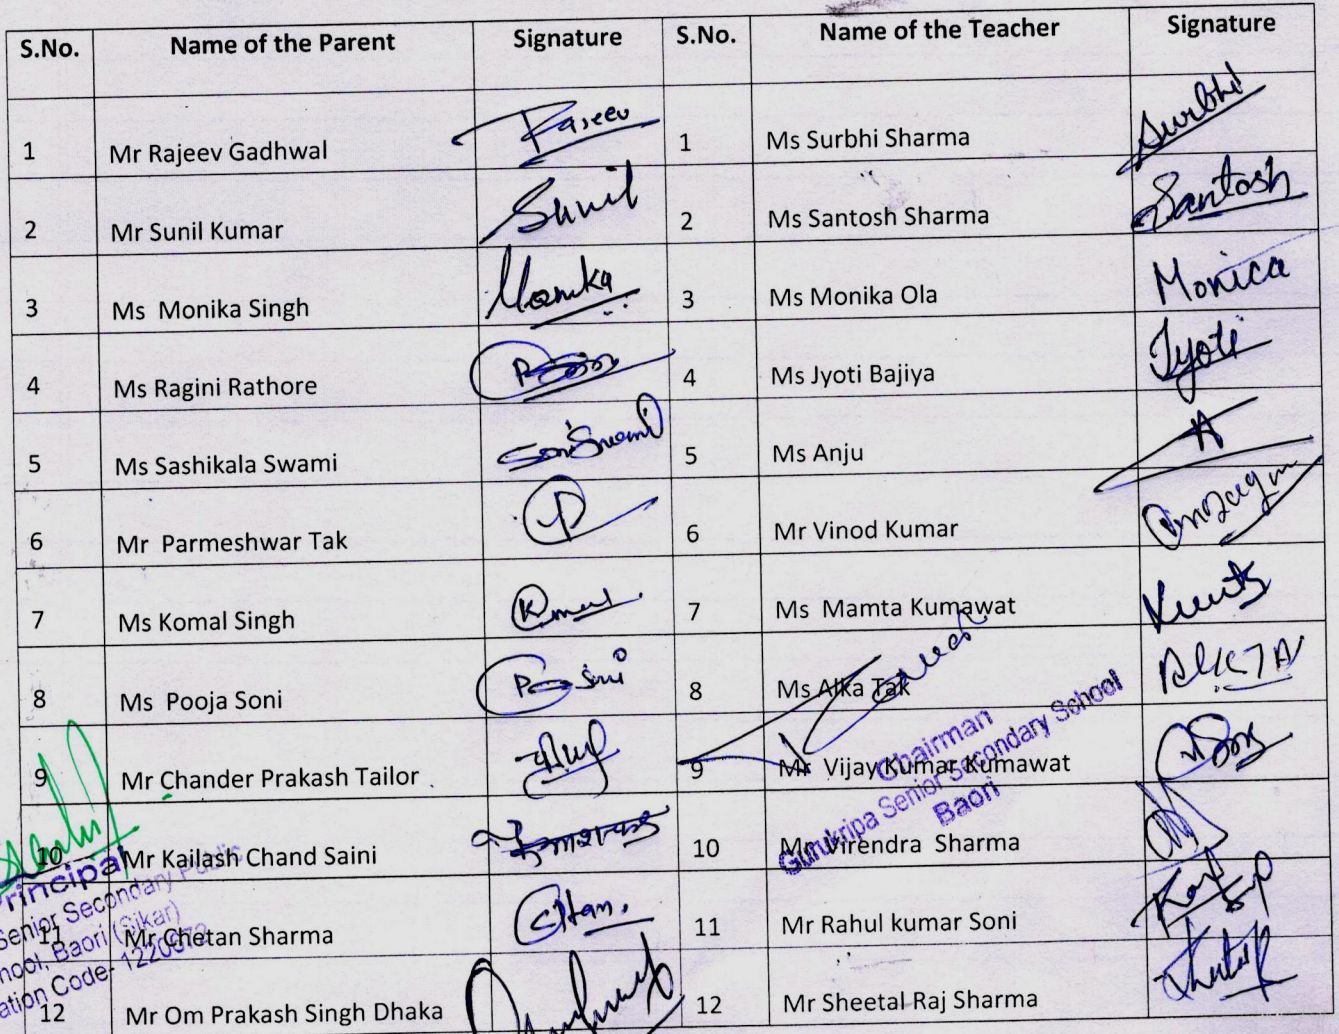 S.No. Name of the Parent Signature S.No. Name of the Teacher Signature
1 Mr Rajeev Gadhwal Rajeev 1 Ms Surbhi Sharma Surbhi
2 Mr Sunil Kumar Sunil 2 Ms Santosh Sharma Santosh
3 Ms Monika Singh Monika 3 Ms Monika Ola Monica
4 Ms Ragini Rathore 4 Ms Jyoti Bajiya Jyoti
5 Ms Sashikala Swami 5 Ms Anju A
6 Mr Parmeshwar Tak P 6 Mr Vinod Kumar
7 Ms Komal Singh 7 Ms Mamta Kumawat
8 Ms Pooja Soni 8 Ms Alka Tak
9 Mr Chander Prakash Tailor 9 Mr Vijay Kumar Kumawat
10 Mr Kailash Chand Saini 10 Mr Virendra Sharma
11 Mr Chetan Sharma 11 Mr Rahul kumar Soni
12 Mr Om Prakash Singh Dhaka 12 Mr Sheetal Raj Sharma
Chairman
Gurukripa Senior Secondary School
Baori
Principal
Senior Secondary Public
hool, Baori (Sikar)
ation Code- 1220372